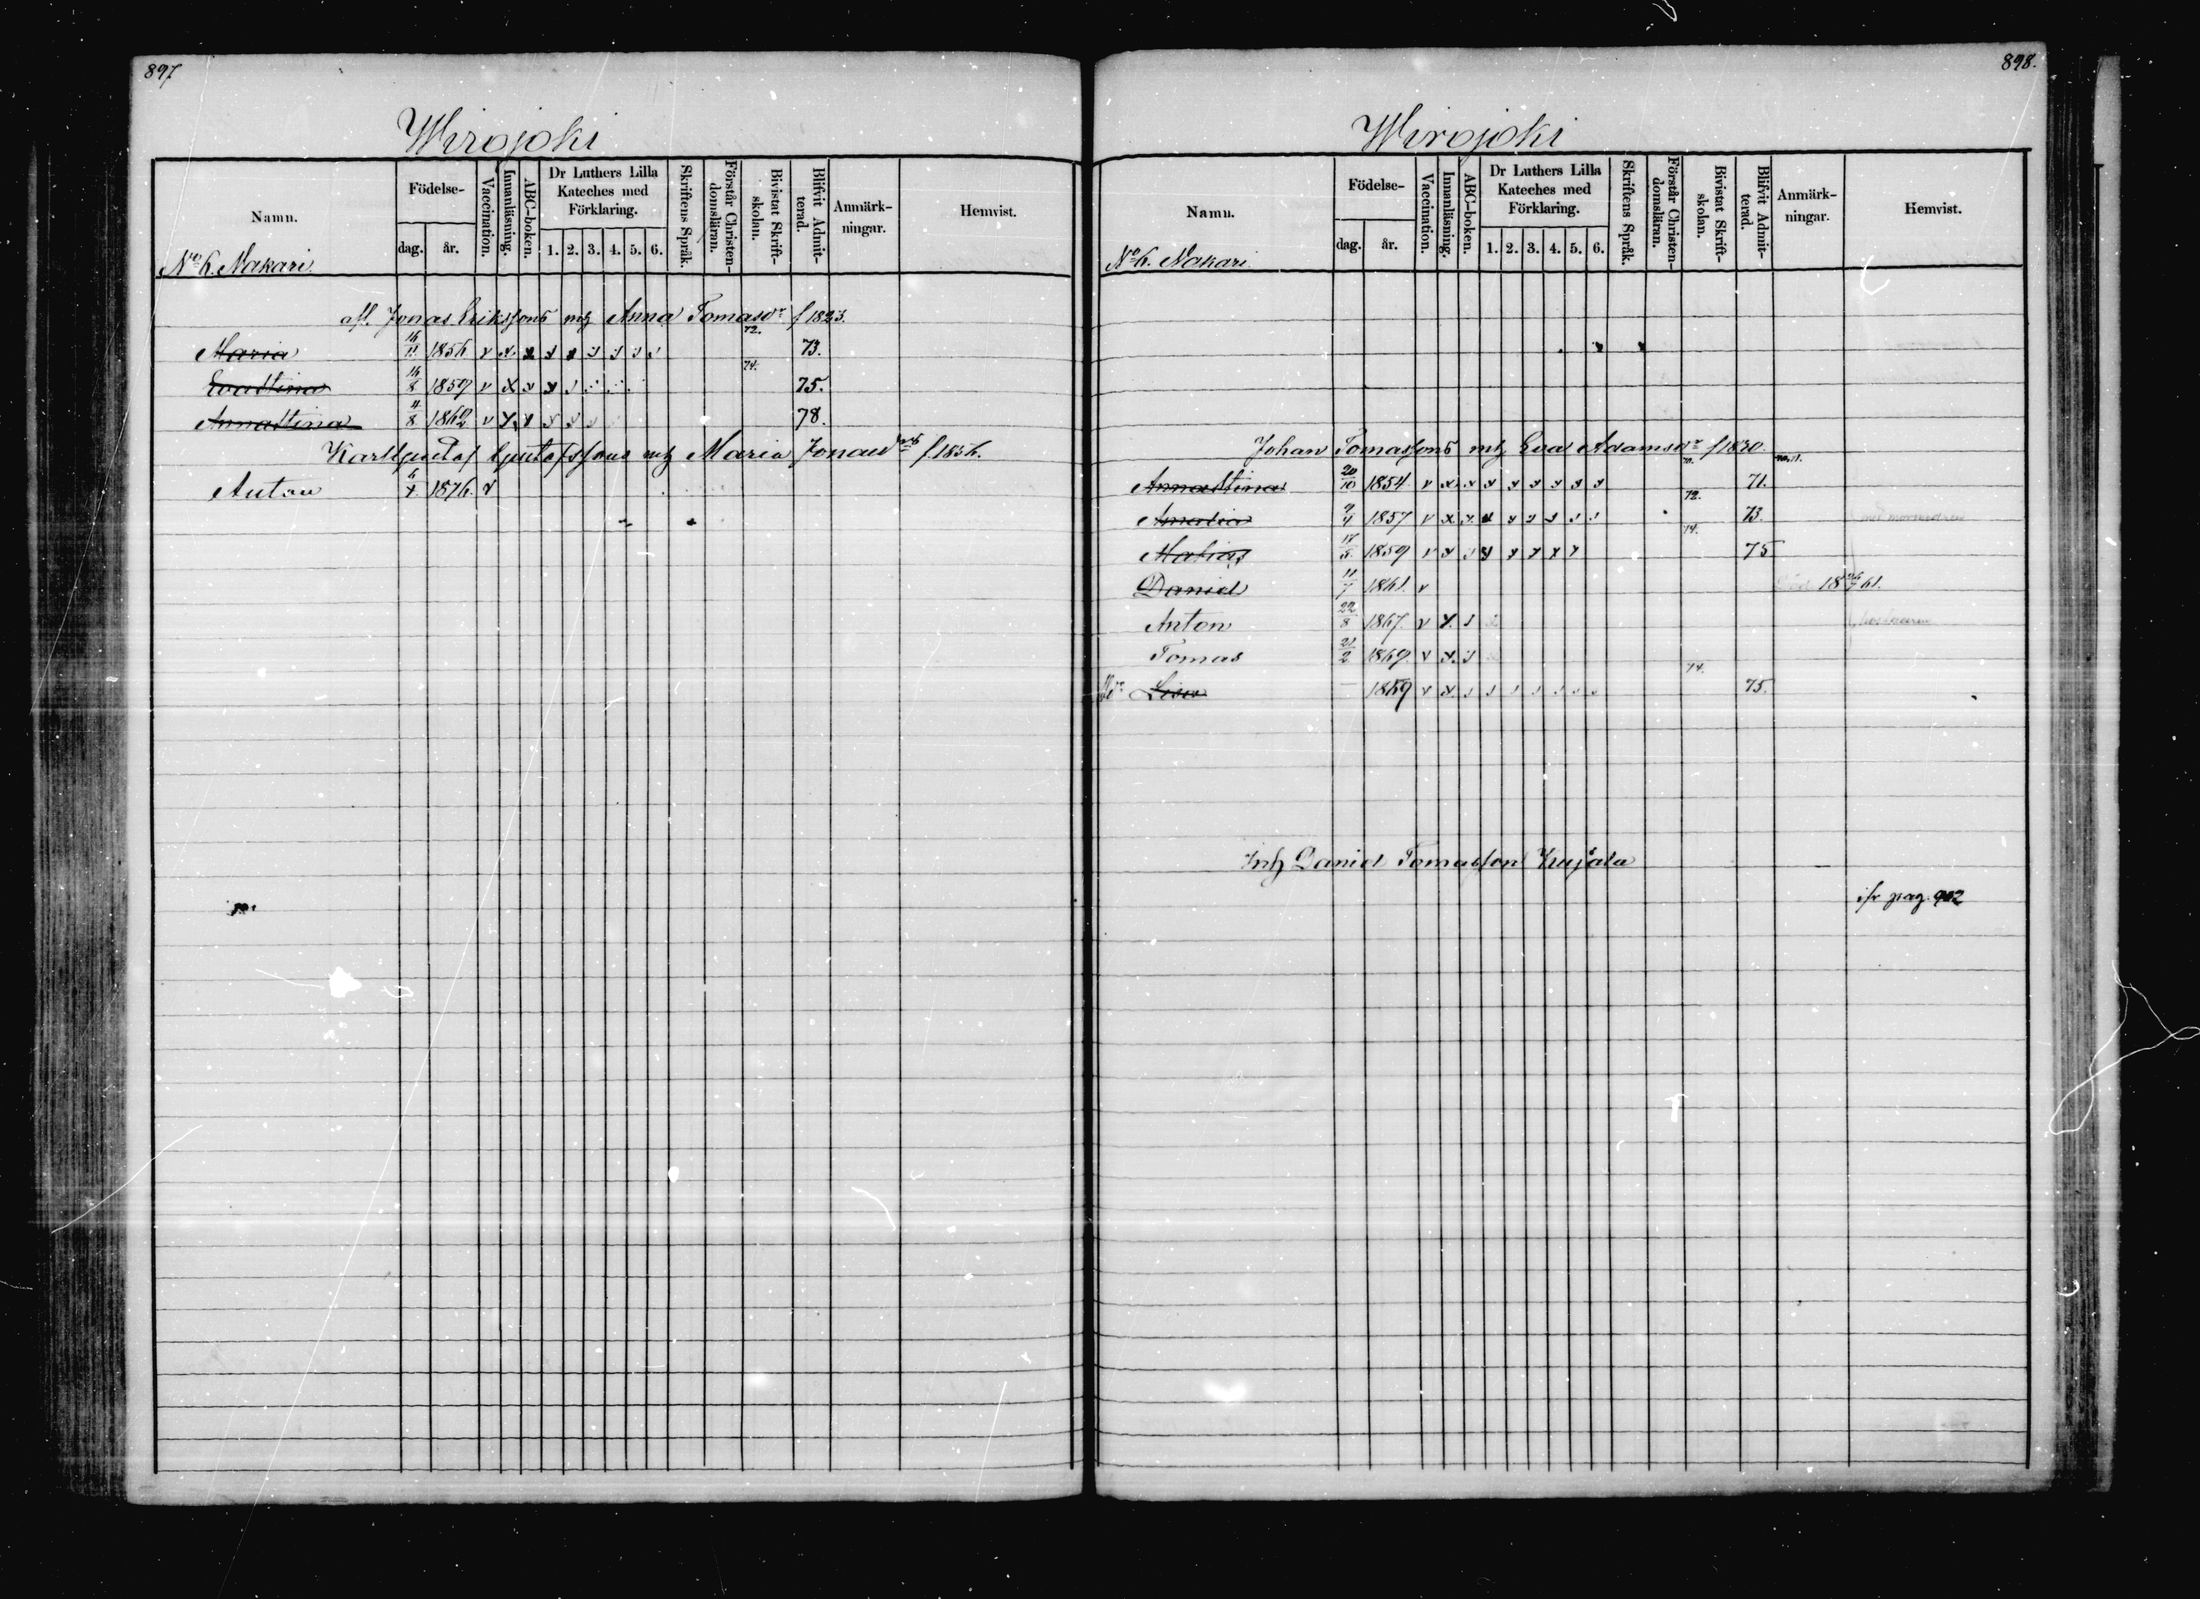 897
Wirojoki
Namn.
Födelse-
dag.
år.
Vaccination.
Innanläsning.
ABC-boken.
Dr Luthers Lilla Kateches med Förklaring.
1. 2. 3. 4. 5. 6.
Skriftens Språk.
Förstår Christendomsläran.
Bivistat Skriftskolan.
Blifvit Admitterad.
Anmärkningar.
Hemvist.
No 6. Nakari
afl. Jonas Erikssons Anna Tomasdr f 1823.
Maria 16/11 1856 v x x x x 72. 73.
Eva Stina 16/8 1859 v x 74. 75.
Anna Stina 4/8 1862 v x 78.
Karl Gustaf Gustafssons Maria Jonasd f. 1856.
Anton 6/4 1876. v
898.
Wirojoki
Namn.
Födelse-
dag.
år.
Vaccination.
Innanläsning.
ABC-boken.
Dr Luthers Lilla Kateches med Förklaring.
1. 2. 3. 4. 5. 6.
Skriftens Språk.
Förstår Christendomsläran.
Bivistat Skriftskolan.
Blifvit Admitterad.
Anmärkningar.
Hemvist.
No 6. Nakari
Johan Tomassons Eva Adamsdr f 1830.
Anna Stina 20/10 1854 v x 70. 71.
Amalia 9/4 1857 v x 72. 73.
Matias 17/5 1859 v x 74. 75
Daniel 11/7 1861. v 18 61.
Anton 22/8 1867. v x
Tomas 21/2 1869. v x
Lisa 1859 v x 74. 75.
Daniel Tomasson Kujala
pag. 902